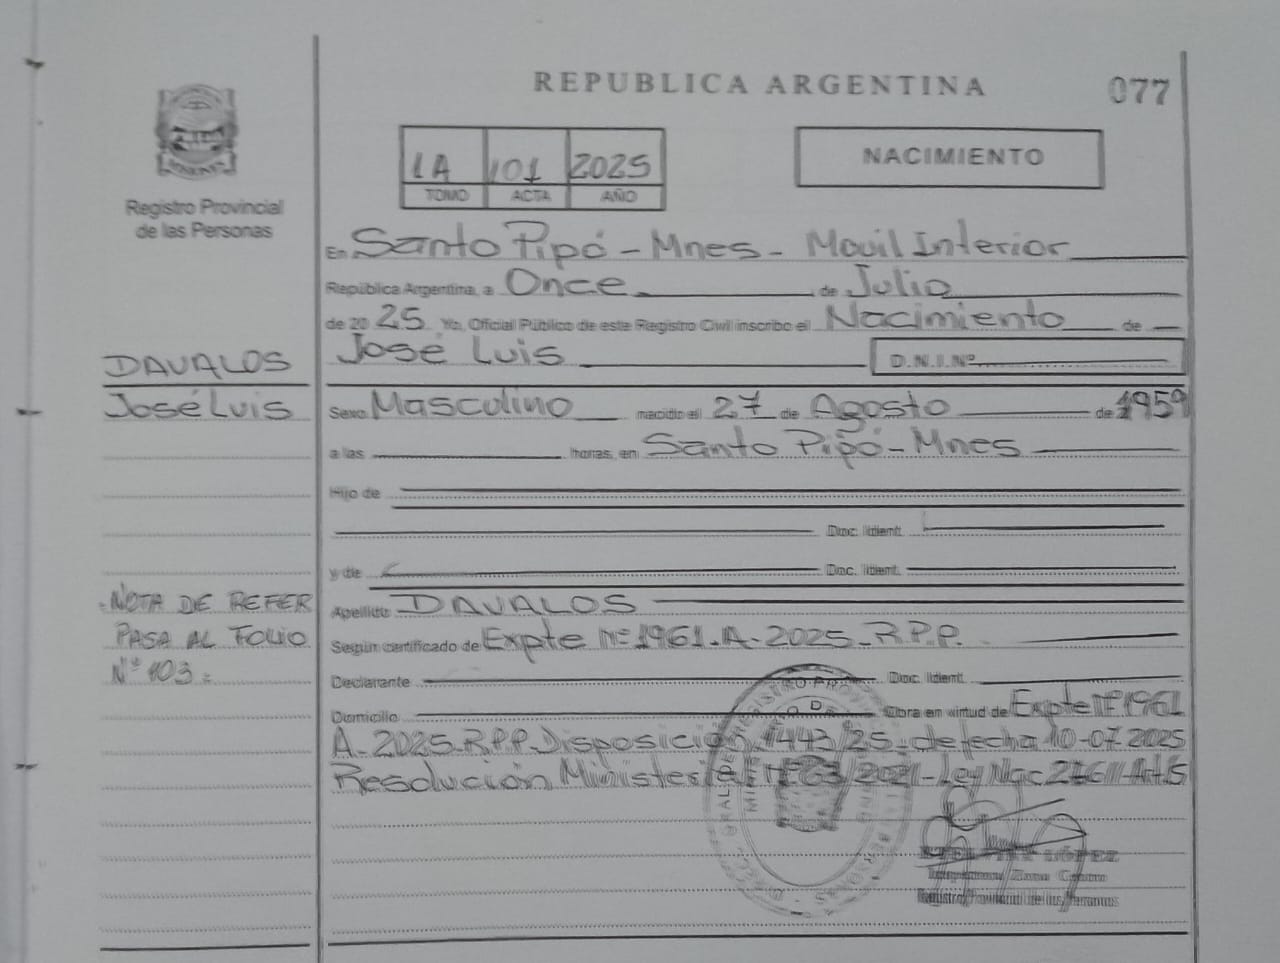 REPUBLICA ARGENTINA
077
1A 101 2025
TOMO ACTA AÑO
NACIMIENTO
Registro Provincial
de las Personas
En Santo Pipó - Mnes - Movil Interior
República Argentina, a Once de Julio
de 20 25 Yo, Oficial Público de este Registro Civil inscribo el Nacimiento de
José Luis D.N.I.Nº
DAVALOS
José Luis
Sexo Masculino nacido el 27 de Agosto de 1959
a las horas, en Santo Pipó - Mnes
Hijo de
Doc. Ident.
y de Doc. Ident.
NOTA DE REFER
PASA AL FOLIO
Nº 103
Apellido DAVALOS
Según certificado de Expte Nº 1961-A-2025-R.P.P.
Declarante Doc. Ident.
Domicilio Obra en virtud de Expte Nº 1961
A-2025-R.P.P. Disposición 1443/25 de fecha 10-07-2025
Resolución Ministerial Nº 63/2021 - Ley Nac 27611 Art 5
LÓPEZ
Zona Centro
Registro Provincial de las Personas